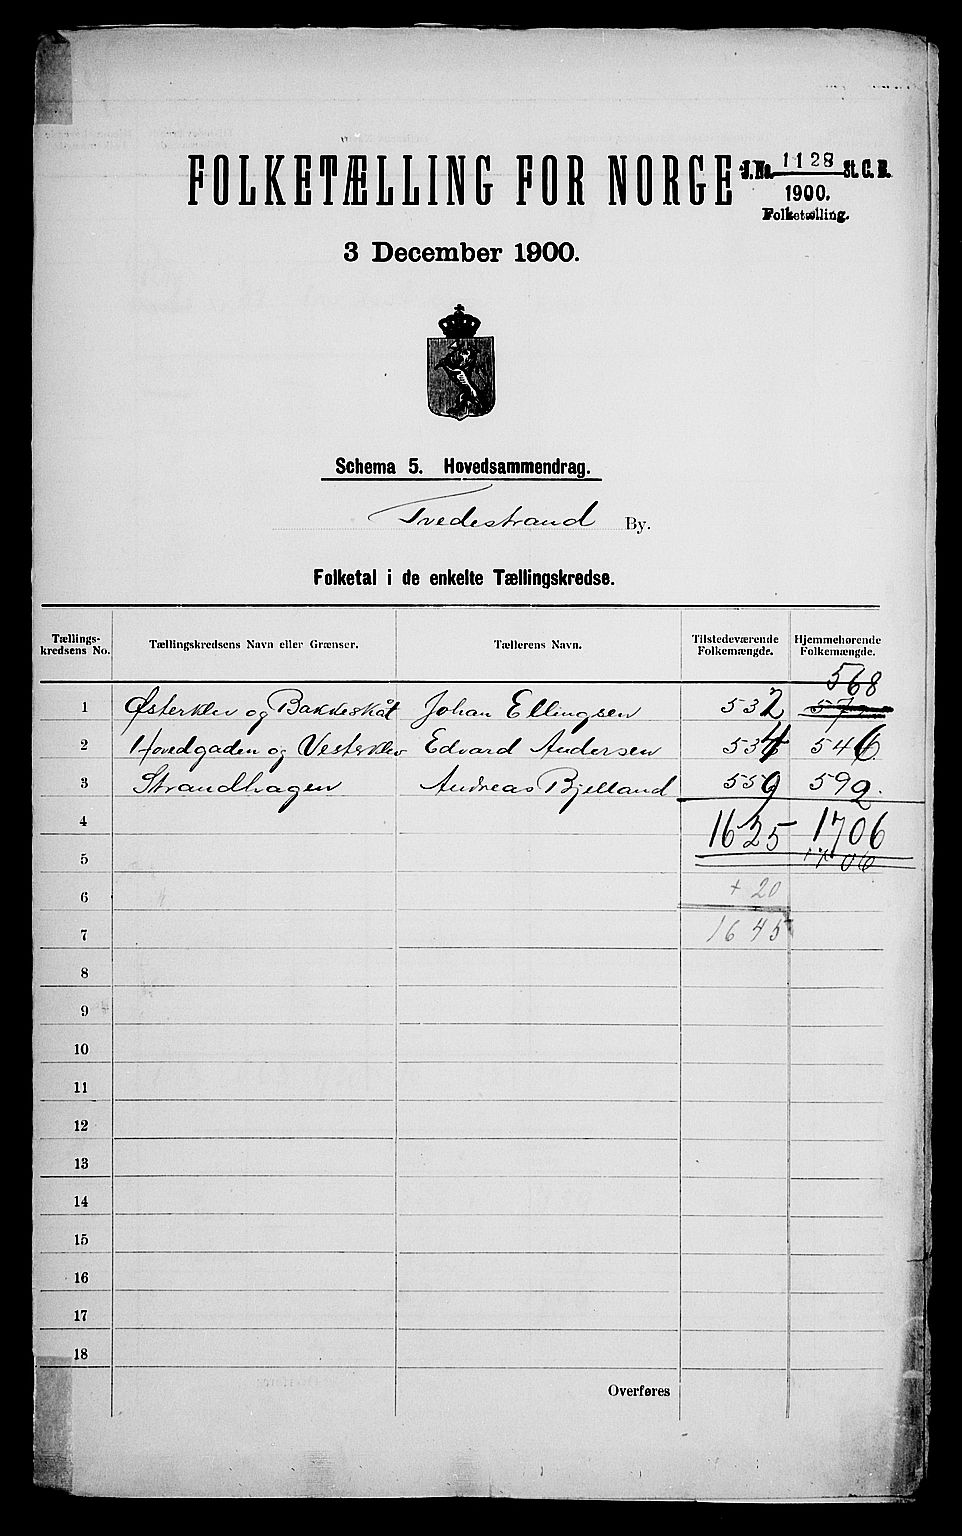 FOLKETÆLLING FOR NORGE
J.No. 1128 St. C. B.
1900.
Folketælling.
3 December 1900.
Schema 5. Hovedsammendrag.
Tvedestrand By.
Folketal i de enkelte Tællingskredse.
Tællings-kredsens No. Tællingskredsens Navn eller Grænser. Tællerens Navn. Tilstedeværende Folkemængde. Hjemmehørende Folkemængde.
568
1 Østerklev og Bakkeskåt Johan Ellingsen 532
2 Hovedgaden og Vesterklev Edvard Andersen 534 546
3 Strandhagen Andreas Bjelland 559 592.
4 1625 1706
5 1706
6 + 20
7 1645
8
9
10
11
12
13
14
15
16
17
18
Overføres